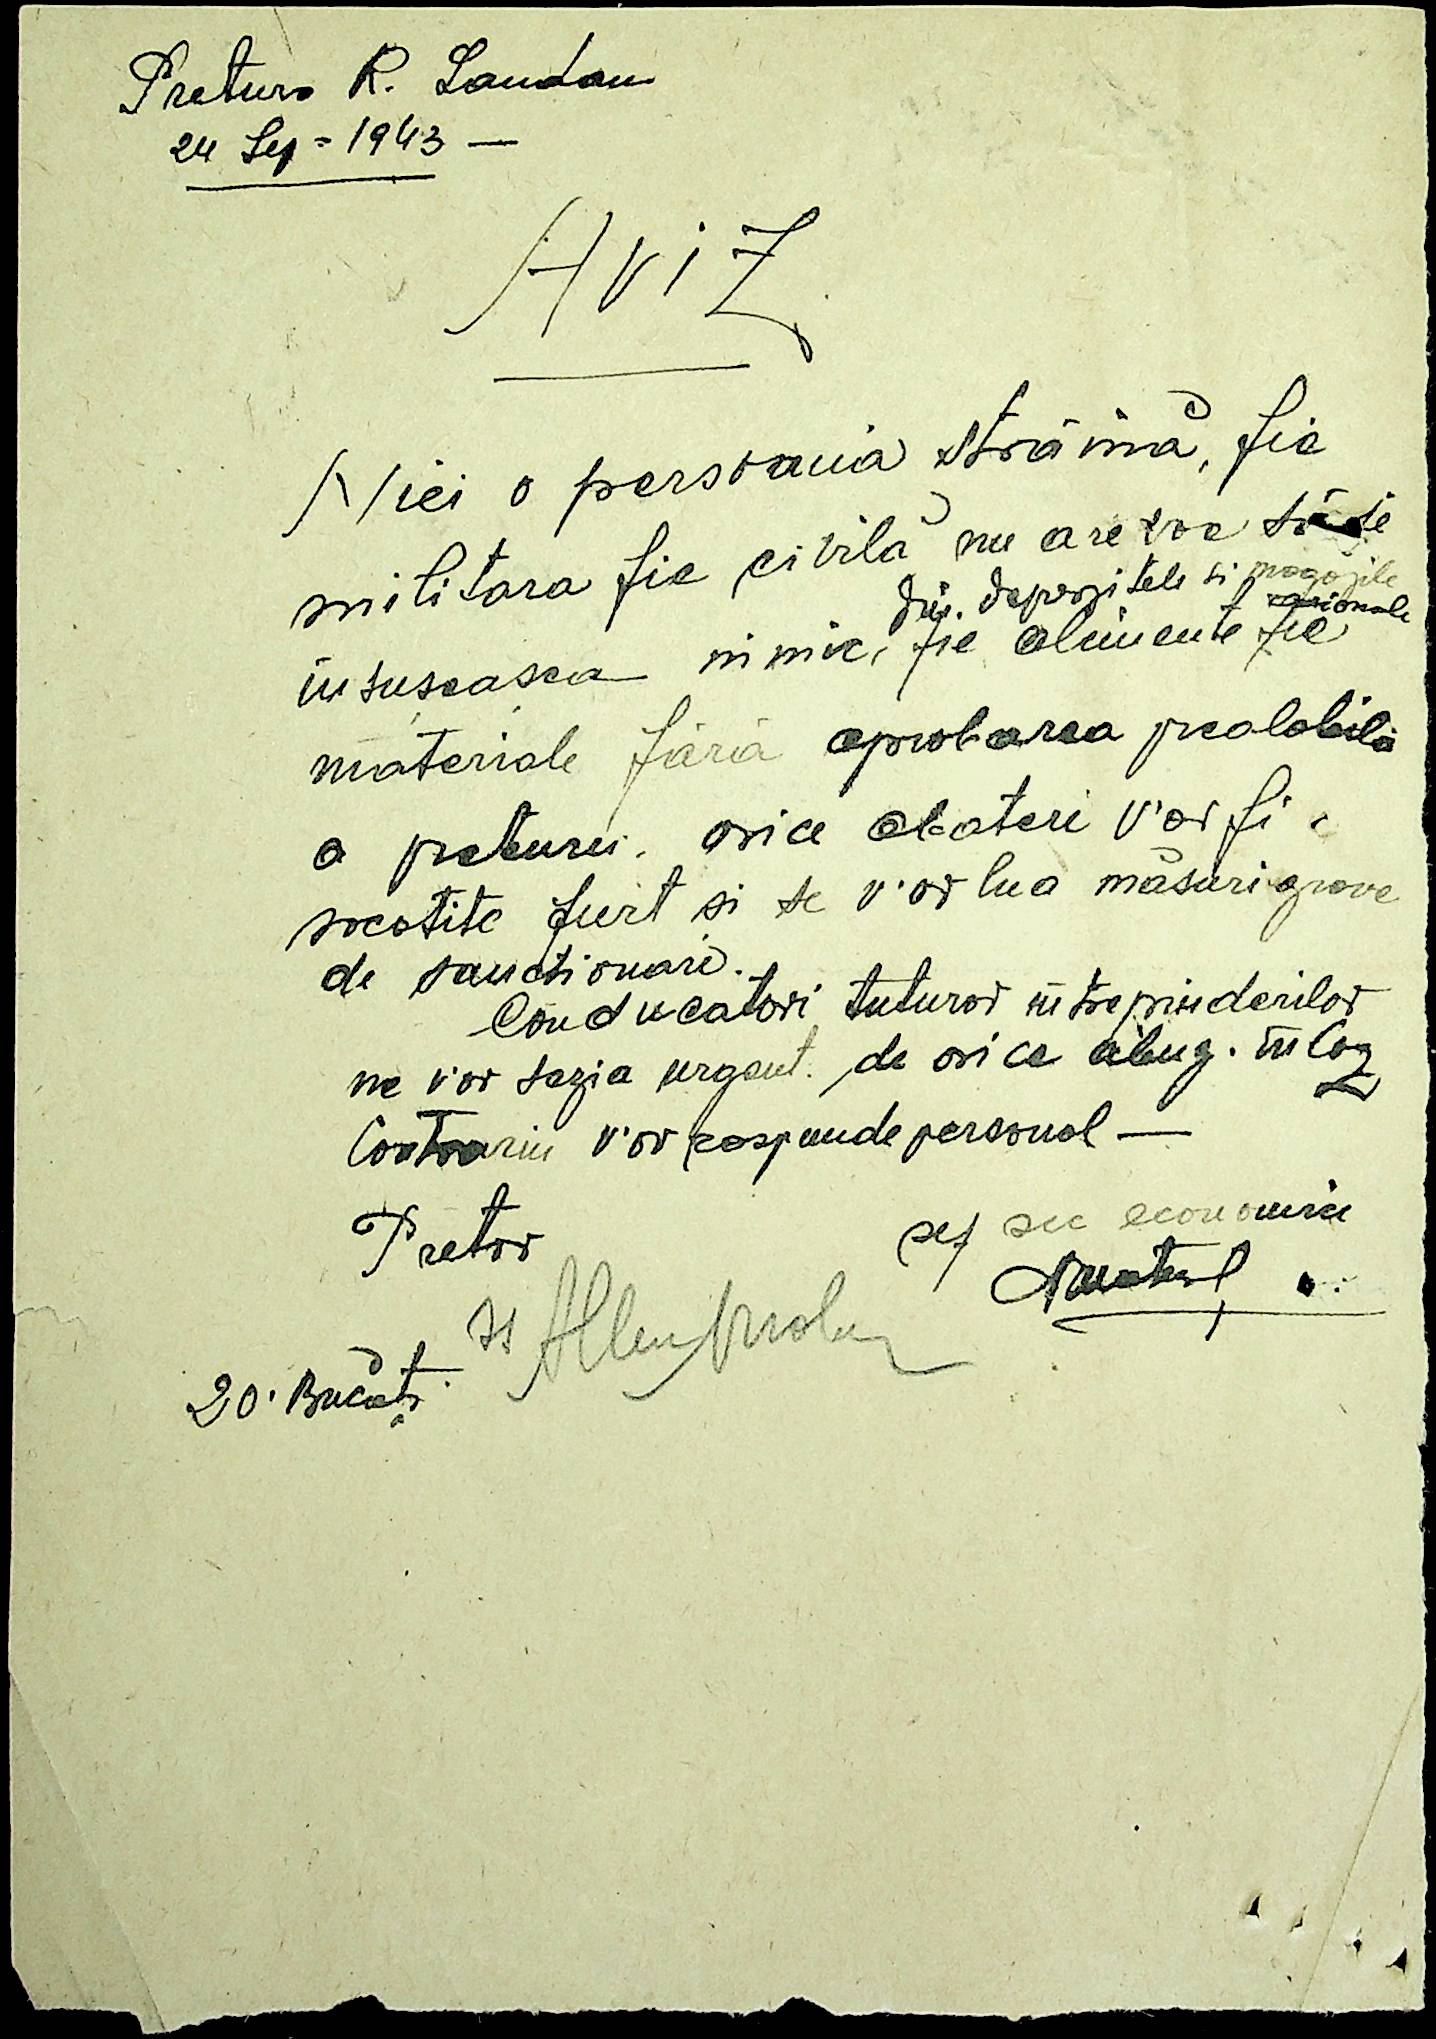 Pretura R. Landau
24 Sep = 1943 —
AViZ
Nici o persoana străină, fie
militara fie civilă nu are voe să-și
din depozitele si magaziile
insuseasca nimic, fie alimente fie
materiale fără aprobarea prealabilă
a preturii. orice abateri v'or fi
socotite furt si se v'or lua măsuri grave
de sanctionari.
Conducatori tuturor intreprinderilor
ne vor sezia urgent. de orice abuz. in caz
Contrariu v'or raspunde personal —
Pretor
sef sec economic
ss
20. Bucăți.